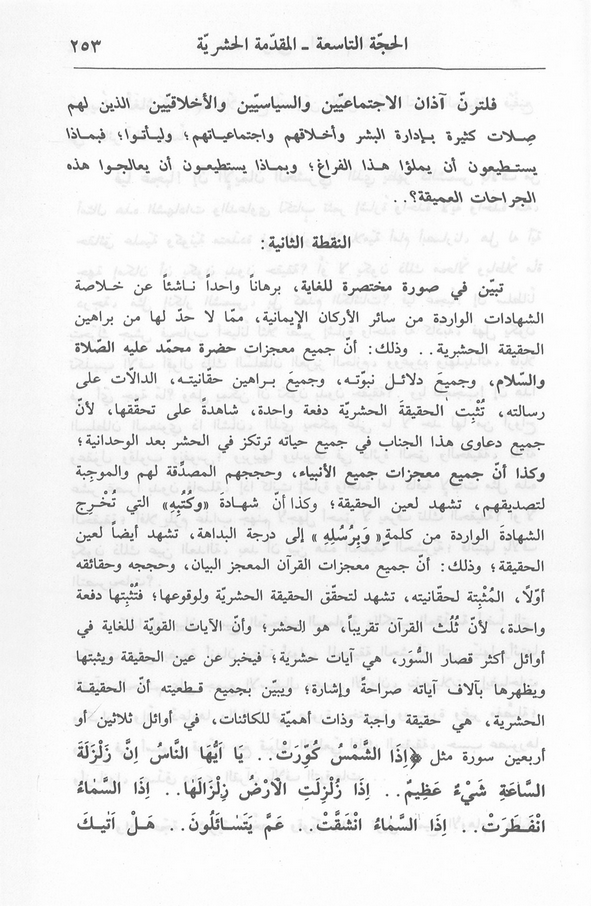 الحجّة التاسعة ـ المقدّمة الحشريّة ٢٥٣
فلترنّ آذان الاجتماعيّين والسياسيّين والأخلاقيّين الذين لهم
صِلات كثيرة بـإدارة البشر وأخلاقهم واجتماعياتهم؛ وليـأتـوا؛ فبماذا
يستـطيعون أن يملؤا هـذا الفراغ؛ وبمـاذا يستطيعـون أن يعالجـوا هذه
الجراحات العميقة؟..
النقطة الثانية:
تبيّن في صورة مختصرة للغاية، برهاناً واحداً ناشئاً عن خـلاصة
الشهادات الواردة من سائر الأركان الإيمانية، ممّا لا حدّ لها من براهين
الحقيقة الحشرية.. وذلك: أنّ جميع معجزات حضرة محمّد عليه الصّلاة
والسّلام، وجميعَ دلائـل نبوّتـه، وجميعَ بـراهين حقّانيتـه، الدالّات على
رسالته، تُثْبِت الحقيقةَ الحشريّة دفعة واحدة، شاهدةً على تحقّقها، لأنّ
جميع دعاوى هذا الجناب في جميع حياته ترتكز في الحشر بعد الوحدانية؛
وكذا أنّ جميع معجزات جميع الأنبياء، وحججهم المصدِّقة لهم والموجِبة
لتصديقهم، تشهد لعين الحقيقة؛ وكذا أنّ شهادةَ «وكُتُبِهِ» التي تُخْرِج
الشهادةَ الواردة من كلمةِ «وبِرُسُلِهِ» إلى درجة البداهة، تشهد أيضاً لعين
الحقيقة؛ وذلك: أنّ جميع معجزات القرآن المعجز البيان، وحججه وحقائقه
أوّلاً، المُثْبِتة لحقّانيته، تشهد لتحقّق الحقيقة الحشريّة ولوقوعها؛ فتُثْبِتها دفعة
واحدة، لأنّ ثُلُث القرآن تقريباً، هو الحشر؛ وأنّ الآيات القويّة للغاية في
أوائل أكثر قصار السُّوَر، هي آيات حشرية؛ فيخبر عن عين الحقيقة ويثبتها
ويظهرها بآلاف آياته صراحةً وإشارة؛ ويبيّن بجميع قـطعيته أنّ الحقيقـة
الحشرية، هي حقيقة واجبة وذات أهميّة للكائنات، في أوائل ثلاثين أو
أربعين سورة مثل ﴿اِذَا الشَّمْسُ كُوِّرَتْ.. يَا اَيُّهَا النَّاسُ اِنَّ زَلْزَلَةَ
السَّاعَةِ شَيْءٌ عَظِيمٌ.. اِذَا زُلْزِلَتِ الْاَرْضُ زِلْزَالَهَا.. اِذَا السَّمَاءُ
انْفَطَرَتْ.. اِذَا السَّمَاءُ انْشَقَّتْ.. عَمَّ يَتَسَائَلُونَ.. هَـلْ اَتٰيـكَ